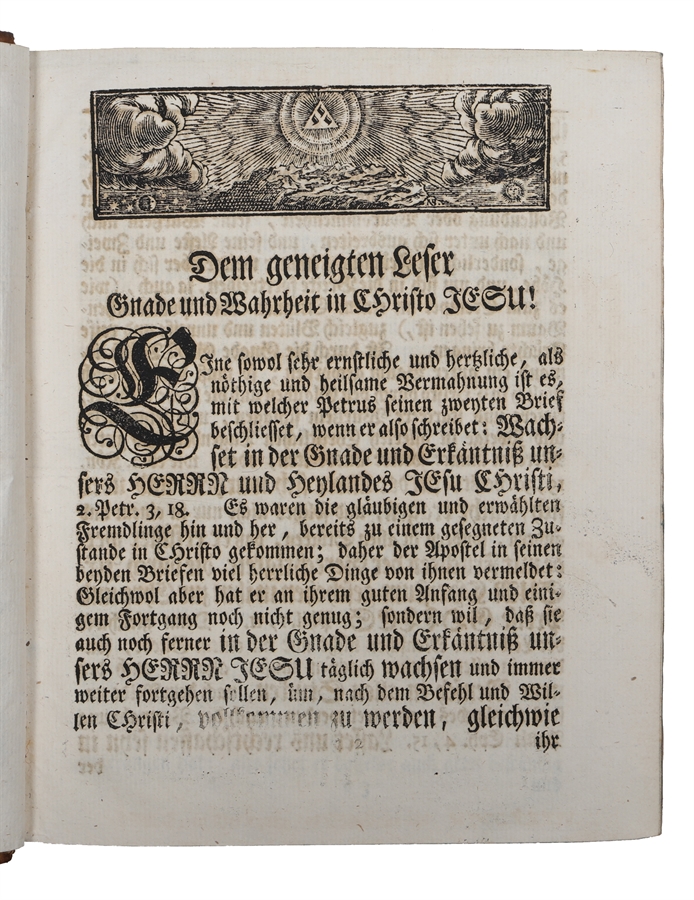 Dem geneigten Leser
Gnade und Wahrheit in CHristo JESU!
EIne sowol sehr ernstliche und hertzliche, als
nöthige und heilsame Vermahnung ist es,
mit welcher Petrus seinen zweyten Brief
beschliesset, wenn er also schreibet: Wach-
set in der Gnade und Erkäntniß un-
sers HERRN und Heylandes JEsu CHristi,
2. Petr. 3, 18. Es waren die gläubigen und erwählten
Fremdlinge hin und her, bereits zu einem gesegneten Zu-
stande in CHristo gekommen; daher der Apostel in seinen
beyden Briefen viel herrliche Dinge von ihnen vermeldet:
Gleichwol aber hat er an ihrem guten Anfang und eini-
gem Fortgang noch nicht genug; sondern wil, daß sie
auch noch ferner in der Gnade und Erkäntniß un-
sers HERRN JESU täglich wachsen und immer
weiter fortgehen sollen, üm, nach dem Befehl und Wil-
len CHristi, vollkommen zu werden, gleichwie
ihr